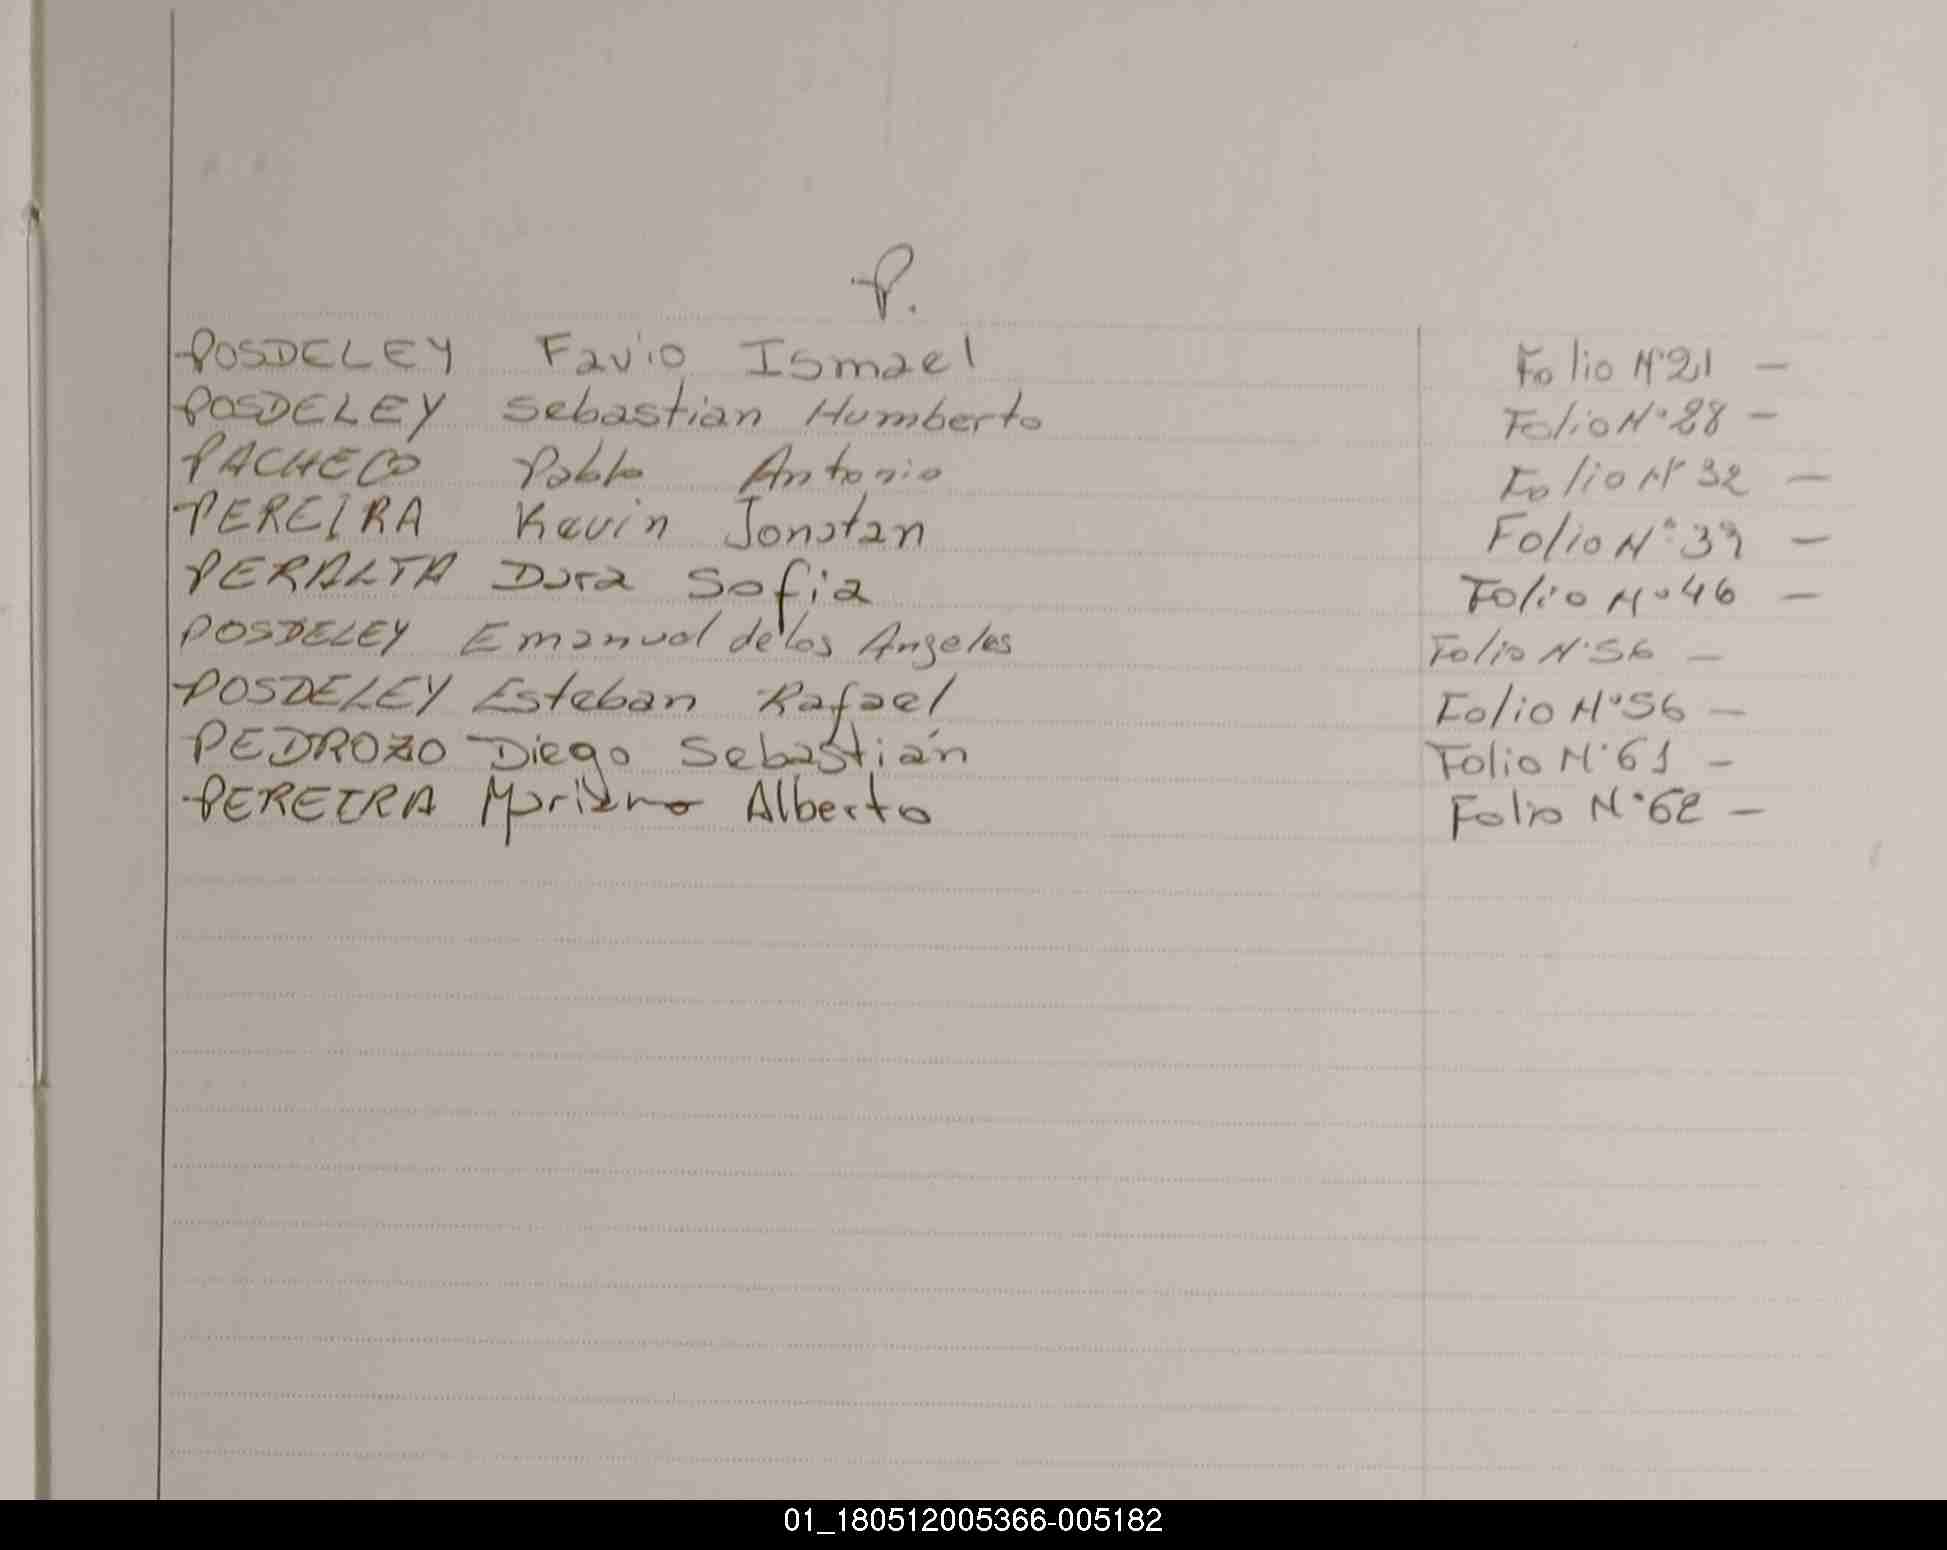 P.
POSDELEY Favio Ismael Folio N°21 —
POSDELEY Sebastian Humberto Folio N°28 —
PACHECO Pablo Antonio Folio N° 32 —
PEREIRA Kevin Jonatan Folio N° 39 —
PERALTA Dora Sofia Folio N° 46 —
POSDELEY Emanuel de los Angeles Folio N°56 —
POSDELEY Esteban Rafael Folio N°56 —
PEDROZO Diego Sebastián Folio N°61 —
PEREIRA Mariano Alberto Folio N°62 —
01_180512005366-005182